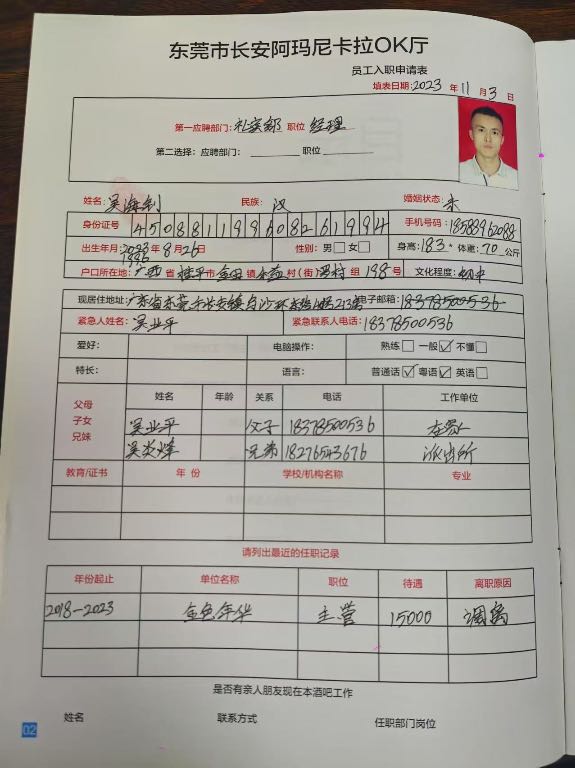 东莞市长安阿玛尼卡拉OK厅
员工入职申请表
填表日期:2023年11月3日
第一应聘部门:礼宾部 职位 经理
第二选择:应聘部门: 职位
姓名: 吴海剑 民族: 汉 婚姻状态: 未
身份证号 450881199608261994 手机号码: 18589962088
出生年月: 1996年8月26日 性别:男□女□ 身高:183 体重:70公斤
户口所在地:广西省桂平市金田镇 村(街 村组198号 文化程度:初中
现居住地址:广东省东莞市长安镇 电子邮箱:18378500536
紧急人姓名:吴业平 紧急联系人电话:18378500536
爱好: 电脑操作: 熟练□ 一般☑ 不懂□
特长: 语言: 普通话☑ 粤语☑ 英语□
父母 子女 兄妹 姓名 年龄 关系 电话 工作单位
吴业平 父子 18378500536
吴炎烽 兄弟 18276543676 派出所
教育/证书 年 份 学校/机构名称 专业
请列出最近的任职记录
年份起止 单位名称 职位 待遇 离职原因
2018-2023 金色年华 主管 15000 调离
是否有亲人朋友现在本酒吧工作
姓名 联系方式 任职部门岗位
02